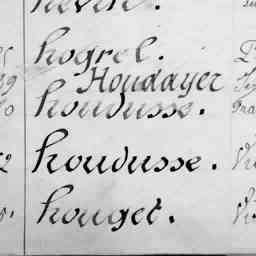 hogrel.
Houdayer
houdusse.
houdusse.
houget.